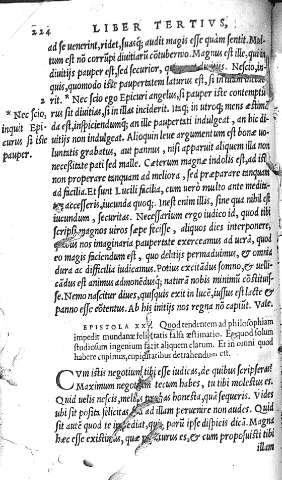 224 LIBER TERTIVS,
ad se uenerint, ridet, suasq; audit magis esse quàm sentit. Mul-
tum est nō corrūpi diuitiarū cōtubernio. Magnus est ille, qui in
diuitijs pauper est, sed securior, qui Nescio, in-
quis, quomodo iste paupertatem laturus est, si in illam
* Nec scio ego Epicuri angelus, si pauper iste contemptu-
rus sit diuitias, si in illas inciderit. Itaq; in utroq; mens æstimā-
da est, inspiciendumq; an ille paupertati indulgeat, an hic di-
uitijs non indulgeat. Alioquin leue argumentum est bonæ uo-
luntatis grabatus, aut pannus, nisi apparuit aliquem illa non
necessitate pati sed malle. Cæterum magnæ indolis est, ad ista
non properare tanquam ad meliora, sed præparare tanquam
ad facilia. Et sunt Lucili facilia, cum uero multo ante medita-
tus accesseris, iucunda quoq;. Inest enim illis, sine qua nihil est
iucundum, securitas. Necessarium ergo iudico id, quod tibi
scripsi magnos uiros sæpe fecisse, aliquos dies interponere,
quibus nos imaginaria paupertate exerceamus ad uerā, quod
eo magis faciendum est, quo delitijs permaduimus, & omnia
dura ac difficilia iudicamus. Potius excitādus somno, & uelli-
cādus est animus admonēdusq; naturā nobis minimū cōstituis-
se. Nemo nascitur diues, quisquis exit in lucē, iussus est lacte &
panno esse cōtentus. Ab his initijs nos regna nō capiūt. Vale.
* Nec scio,
inquit Epi-
curus si iste
pauper.
EPISTOLA Quod tendentem ad philosophiam
impedit mundanæ felicitatis falsa æstimatio. Et quod solum
studiosum ingenium facit aliquem clarum. Et in omni quod
habere cupimus, cupiditatibus detrahendum est.
CVm istis negotium tibi esse iudicas, de quibus scripseras?
Maximum negotium tecum habes, tu tibi molestus es.
Quid uelis nescis, melius probas honesta, quàm sequeris. Vides
ubi sit posita felicitas, sed ad illam peruenire non audes. Quid
sit autē quod te impediat, quia parū ipse dispicis dicā. Magna
hæc esse existimas, quæ relicturus es, & cum proposuisti tibi
illam